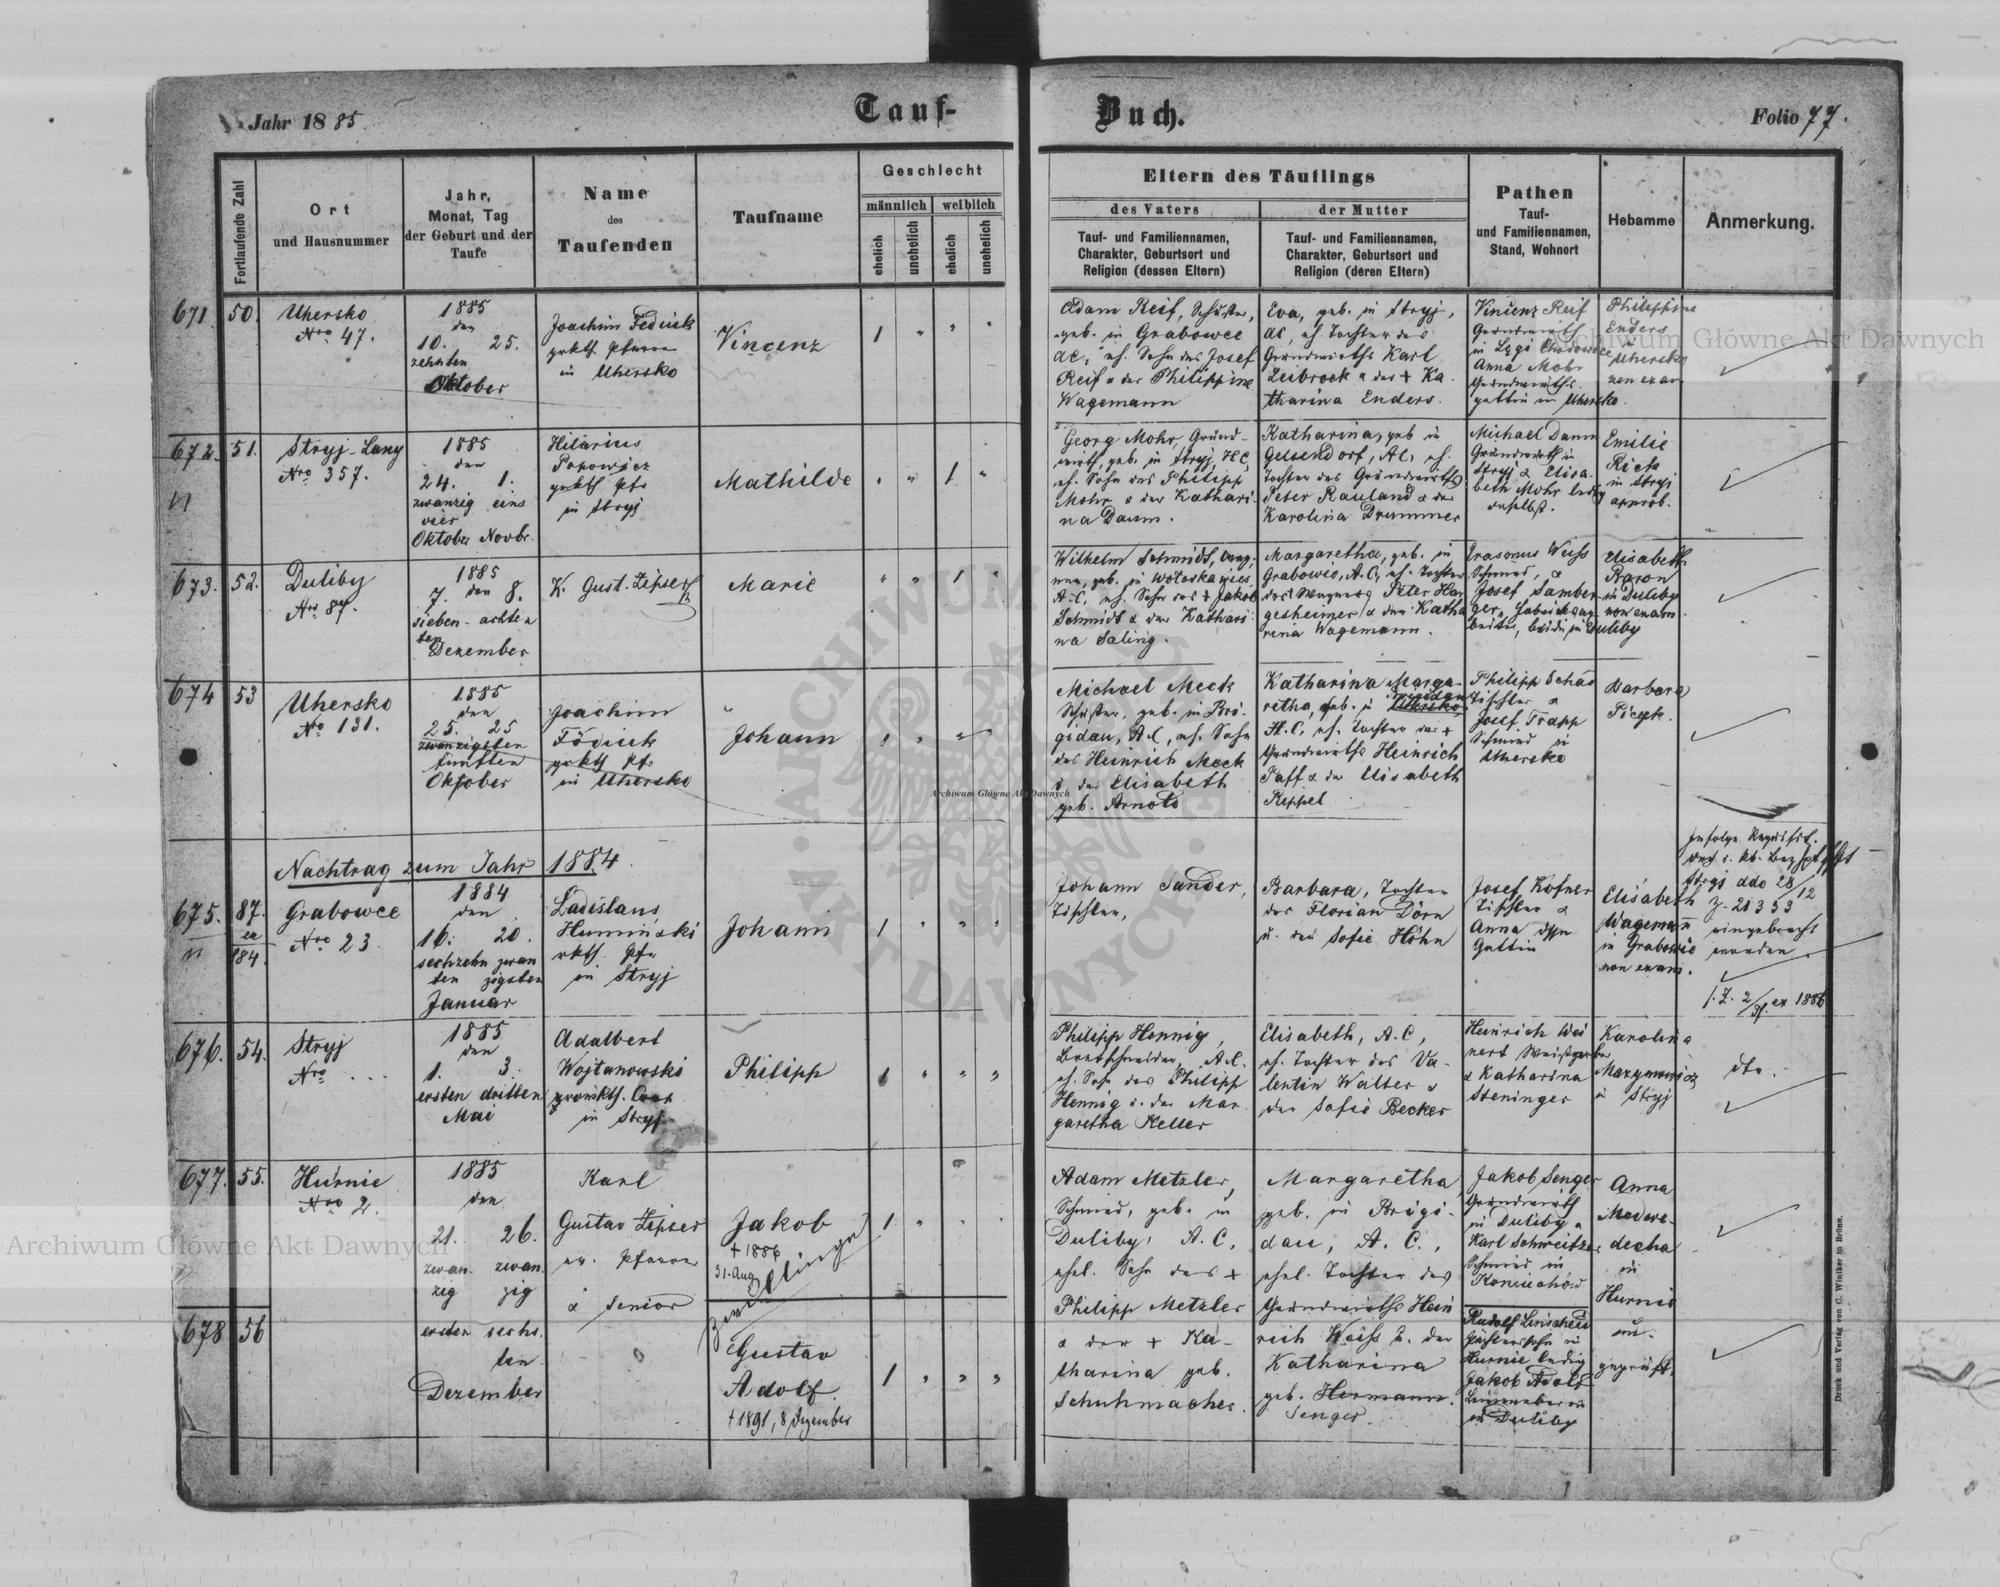 Jahr 1885
Tauf-
Buch.
Folio 77.
Fortlaufende Zahl
Ort
und Hausnummer
Jahr,
Monat, Tag
der Geburt und der
Taufe
Name
des
Taufenden
Taufname
Geschlecht
männlich
weiblich
ehelich
unehelich
ehelich
unehelich
Eltern des Täuflings
des Vaters
der Mutter
Tauf- und Familiennamen,
Charakter, Geburtsort und
Religion (dessen Eltern)
Tauf- und Familiennamen,
Charakter, Geburtsort und
Religion (deren Eltern)
Pathen
Tauf-
und Familiennamen,
Stand, Wohnort
Hebamme
Anmerkung.
671. 50.
Uhersko
Nro 47.
1885
den
10. 25.
zehnten
Oktober
Joachim Fedicek
in Uhersko
Vincenz
1 " " "
Adam Reif, Schuster,
geb. in Grabowce
AC, eh. Sohn des Josef
Reif u der Philippine
Wagemann
Eva, geb. in Stryj,
AC, eh. Tochter des
Grundwirths Karl
Leibrock u der + Ka
tharina Enders.
Vincenz Reif
Grundwirth
Anna Mohr
Grundwirths-
gattin in Uhersko.
Philippine
Enders
Uhersko
non exam
672. 51.
Stryj-Lany
Nro 357.
1885
den
24. 1.
zwanzig eins
vier
Oktober Novbr.
Hilarius
Popowicz
in Stryj
Mathilde
" " 1 "
Georg Mohr, Grund-
wirth, geb. in Stryj, HC,
eh. Sohn des Philipp
Mohr u der Kathari-
na Daum.
Katharina, geb in
Gelsendorf, AC, eh.
Tochter des Grundwirths
Peter Rauland u der
Karolina Drummer
Michael Daum
Grundwirth in
Stryj u Elisa-
beth Mohr ledig
daselbst.
Emilie
Rich
in Stryj
approb.
673. 52.
Duliby
Nro 87.
1885
7. den 8.
sieben- achten
ten
Dezember
K. Gust. Zipser
Marie
" " 1 "
Wilhelm Schmidt,
A.C, eh. Sohn des + Jakob
Schmidt u der Kathari-
na Saling.
Margaretha, geb. in
Grabowce, A.C, eh. Tochter
des Wagners Peter Har
gesheimer u der Katha
rina Wagemann.
Erasmus Weiss
Schmied, u
Josef Samber-
ger,
beide in Duliby
Elisabeth
Baron
in Duliby
non exam
674 53
Uhersko
No 131.
1885
den
25. 25
zwanzigsten
fünften
Oktober
Joachim
Födicek
in Uhersko
Johann
1 " " "
Michael Meck
Schuster, geb. in Bri-
gidau, A.C, eh. Sohn
des Heinrich Meck
u der Elisabeth
geb. Arnold
Katharina Marga-
Brigidau
retha, geb. in Uhersko
H.C, eh. Tochter des +
Grundwirths Heinrich
Paff u der Elisabeth
Keppel
Philipp Schäs
Tischler u
Josef Trapp
Schmied in
Uhersko
Barbara
Nachtrag zum Jahr 1884.
675. 87.
ex
884.
Grabowce
Nro 23
1884
den
16. 20.
sechzehn zwan
ten zigsten
Januar
Ladislaus
Huminski
in Stryj
Johann
1 " " "
Johann Sander,
Tischler,
Barbara, Tochter
des Florian Dörn
u. der Sofie Höhn
Josef Kofner
Tischler u
Anna dssn
Gattin
Elisabeth
Wagemann
in Grabowce
non exam.
Stryj ddo 28/12
Z. 21353
eingebracht
worden.
676. 54.
Stryj
Nro ...
1885
den
1. 3.
ersten dritten
Mai
Adalbert
Wojtanowski
in Stryj
Philipp
1 " " "
Philipp Hennig,
Brettschneider, A.C.
eh. Sohn des Philipp
Hennig u. der Mar-
garetha Keller
Elisabeth, A.C,
eh. Tochter des Va-
lentin Walter u
der Sofie Becker
Heinrich Wei
nert
u Katharina
Steninger
Karolina
in Stryj
dto.
677. 55.
Hurnie
Nro 2.
1885
den
21. 26.
zwan- zwan
zig zig
ersten sechs-
ten
Dezember
Karl
Gustav Zipser
ev. Pfarrer
u Senior
Jakob
+ 1886
31. Aug
Zwillinge
1 " " "
Adam Metzler,
Schmied, geb. in
Duliby, A.C.
ehel. Sohn des +
Philipp Metzler
u der + Ka-
tharina geb.
Schuhmacher.
Margaretha
geb. in Brigi-
dau, A.C.,
ehel. Tochter des
Grundwirths Hein
rich Weiss u. der
Katharina
geb. Hermann.
Senger.
Jakob Senger
Grundwirth
in Duliby u
Karl Schweitzer
Schmied in
Koniuchów
Anna
Medwe-
decha
in
Hurnie
geprüft.
678 56
Gustav
Adolf.
+ 1891, 8 Dezember
1 " " "
Rudolf Linscheid
Hurnie ledig
Jakob Adolf
in Duliby
Druck und Verlag von C. Winiker in Brünn.
Archiwum Główne Akt Dawnych
Archiwum Główne Akt Dawnych
Archiwum Główne Akt Dawnych
ARCHIWUM GŁÓWNE AKT DAWNYCH